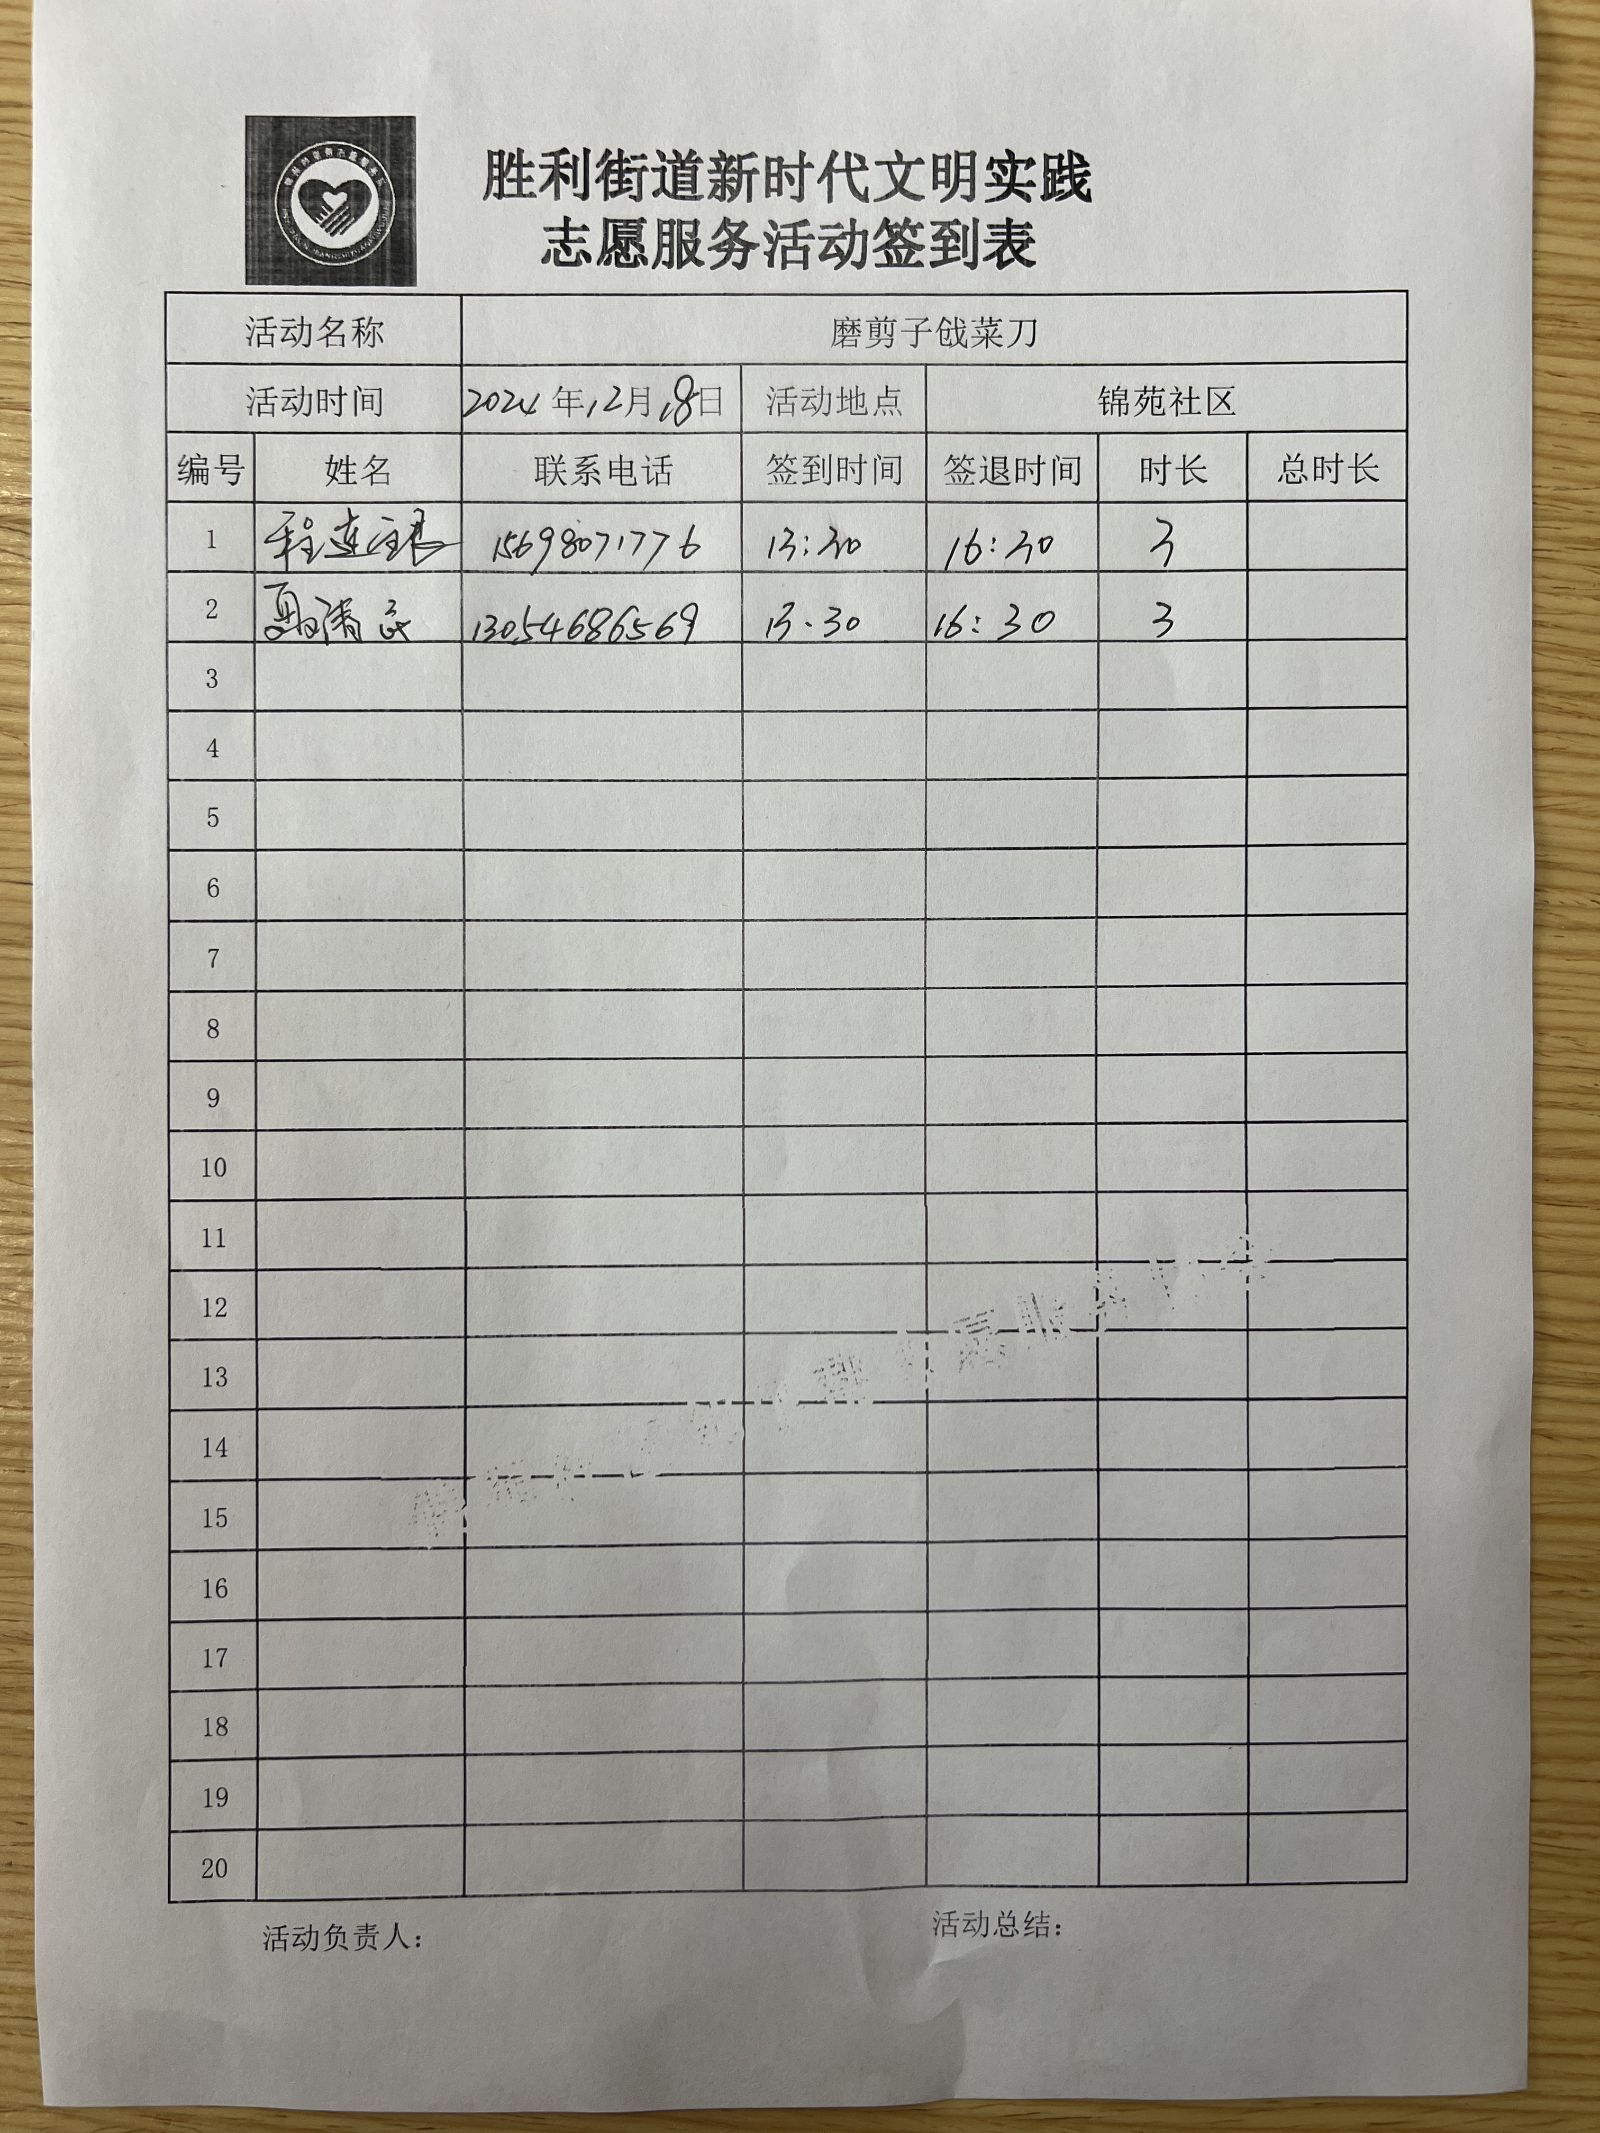 胜利街道新时代文明实践
志愿服务活动签到表
活动名称 磨剪子戗菜刀
活动时间 2024年12月18日 活动地点 锦苑社区
编号 姓名 联系电话 签到时间 签退时间 时长 总时长
1 程连良 15698071776 13:30 16:30 3
2 清 13054686569 13.30 16:30 3
3
4
5
6
7
8
9
10
11
12
13
14
15
16
17
18
19
20
活动负责人： 活动总结：